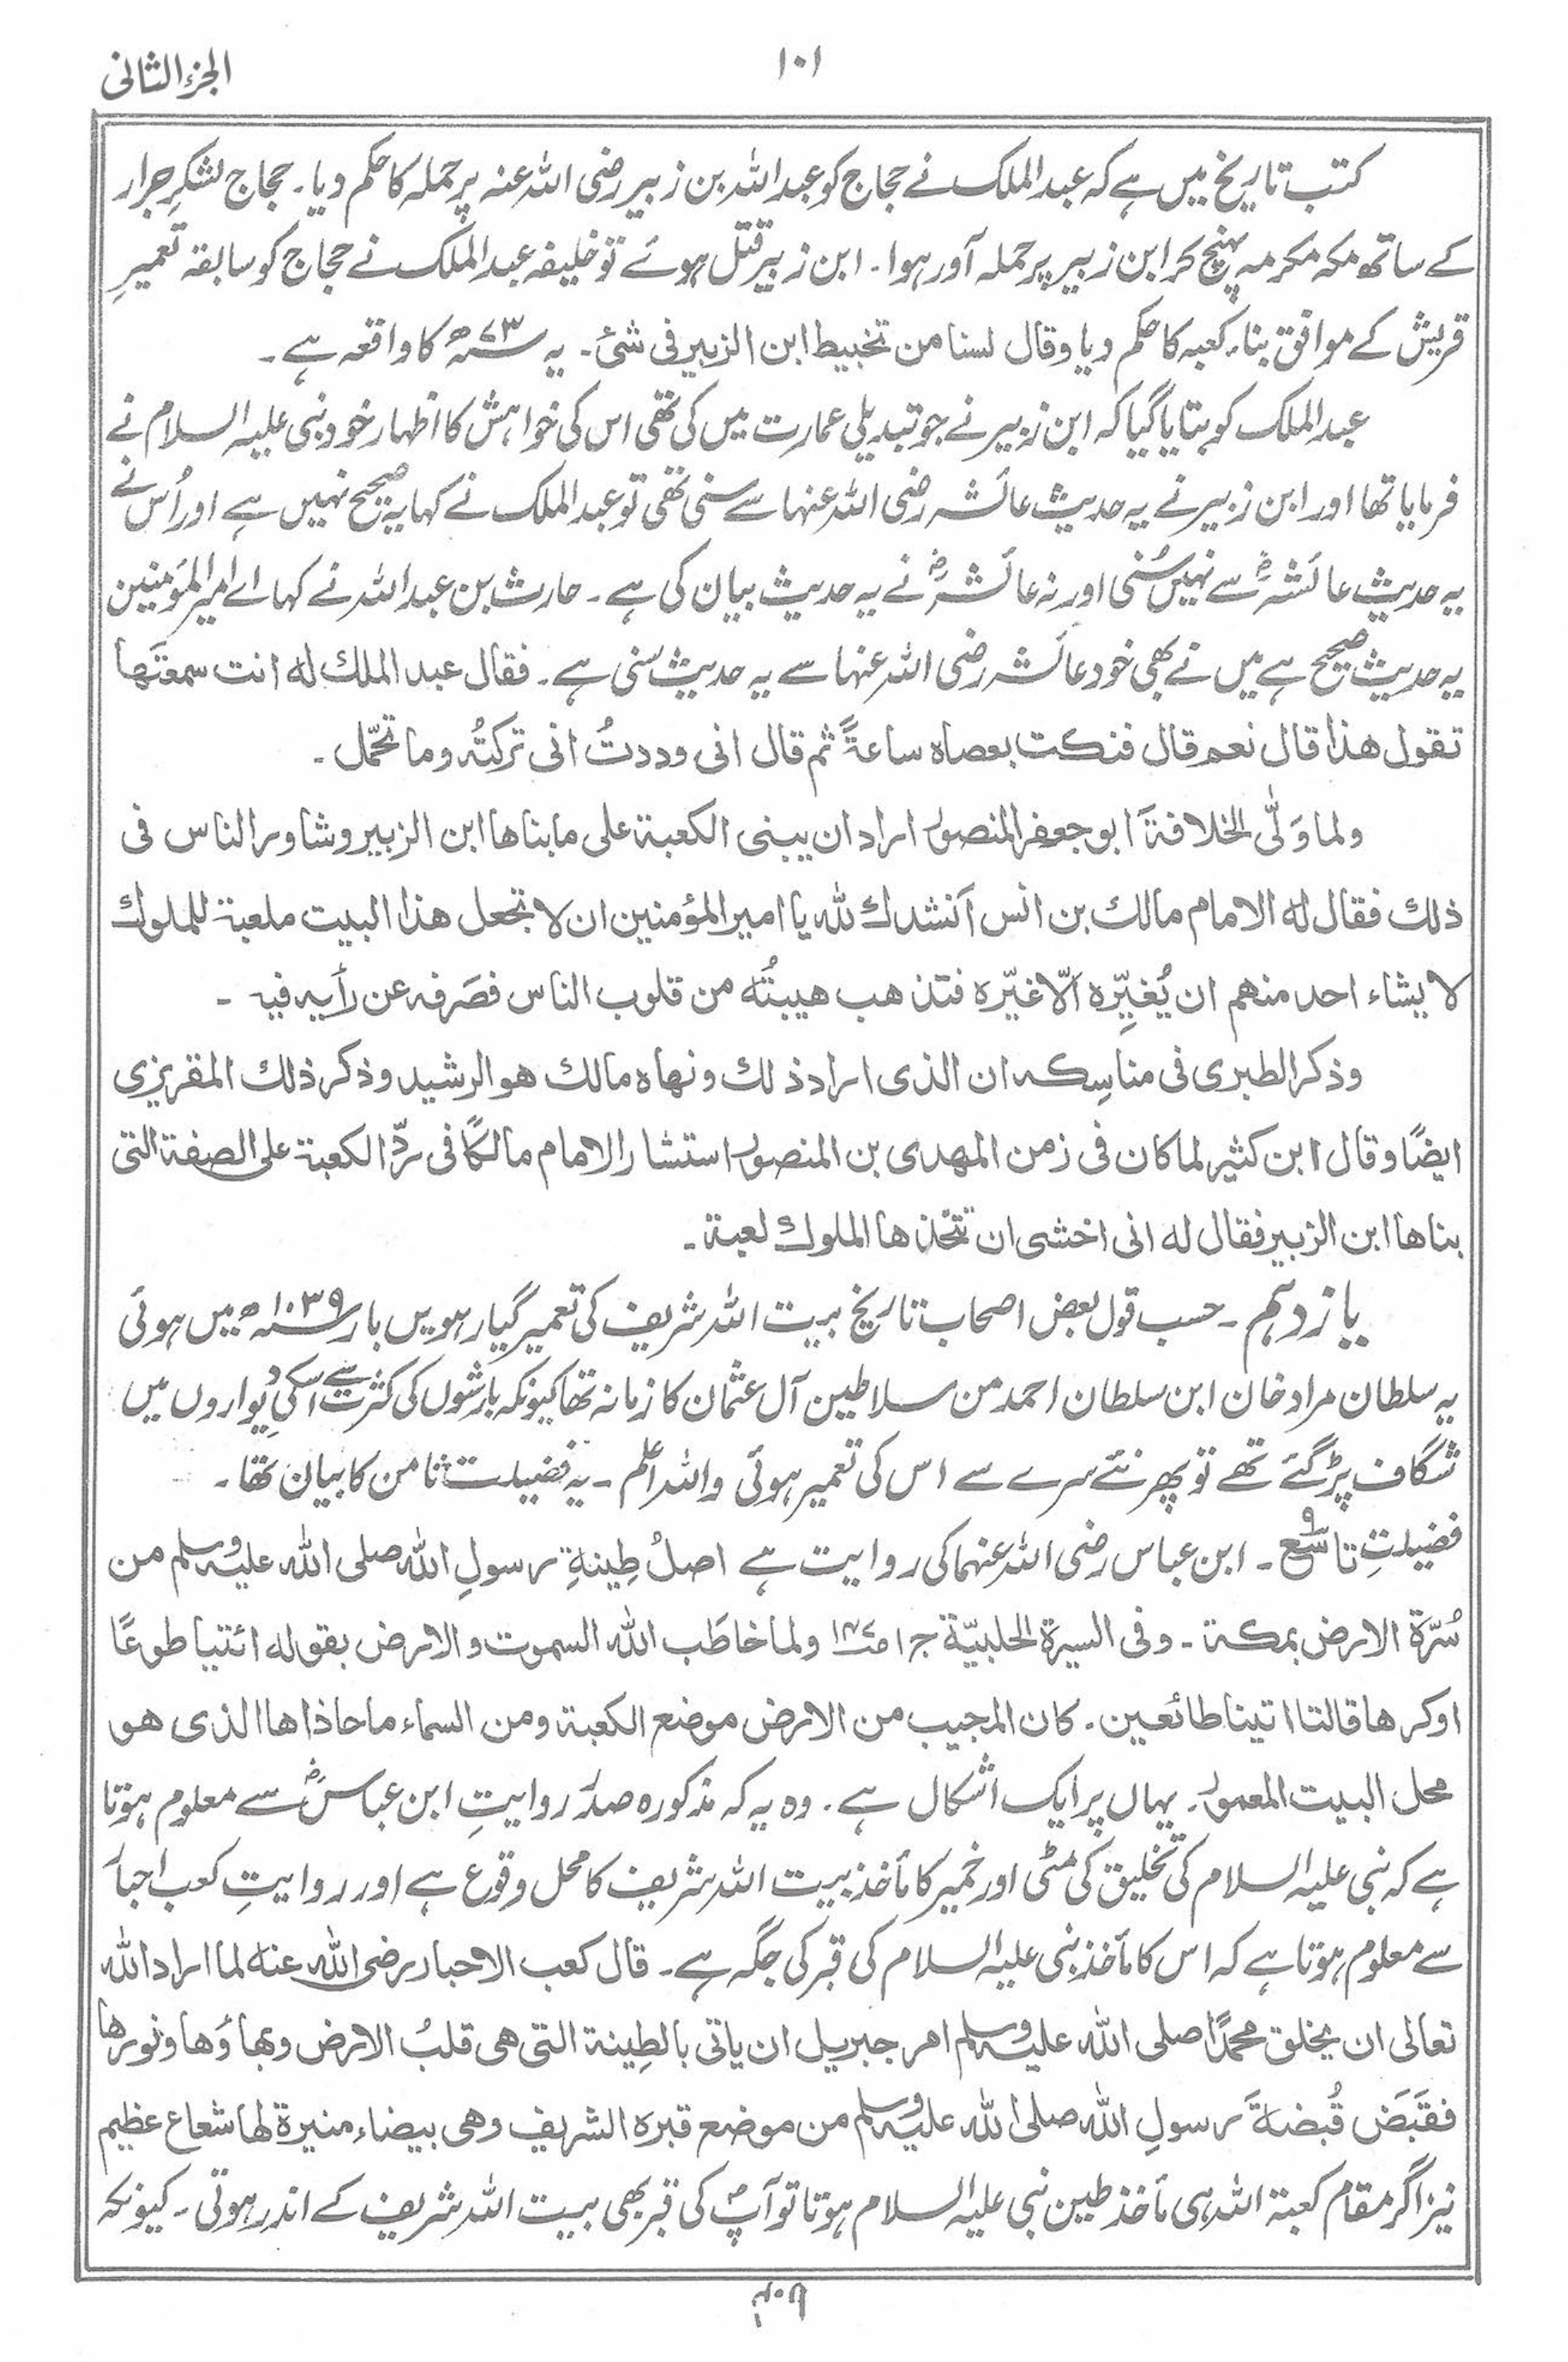 الجزء الثانی
۱۰۱
کتب تاریخ میں ہے کہ عبدالملک نے حجاج کو عبداللہ بن زبیر رضی اللہ عنہ پر حملہ کا حکم دیا۔ حجاج لشکرِ جرار
کے ساتھ مکہ مکرمہ پہنچ کر ابن زبیر پر حملہ آور ہوا۔ ابن زبیر قتل ہوئے تو خلیفہ عبدالملک نے حجاج کو سابقہ تعمیرِ
قریش کے موافق بناء کعبہ کا حکم دیا وقال لسنا من تخبیط ابن الزبیر فی شئ۔ یہ سنہ ۷۳ھ کا واقعہ ہے۔
عبدالملک کو بتایا گیا کہ ابن زبیر نے جو تبدیلی عمارت میں کی تھی اس کی خواہش کا اظہار خود نبی علیہ السلام نے
فرمایا تھا اور ابن زبیر نے یہ حدیث عائشہ رضی اللہ عنہا سے سنی تھی تو عبدالملک نے کہا یہ صحیح نہیں ہے اور اُس نے
یہ حدیث عائشہؓ سے نہیں سُنی اور نہ عائشہؓ نے یہ حدیث بیان کی ہے۔ حارث بن عبداللہ نے کہا اے امیر المؤمنین
یہ حدیث صحیح ہے میں نے بھی خود عائشہ رضی اللہ عنہا سے یہ حدیث سنی ہے۔ فقال عبد الملك له انت سمعتَها
تقول هذا قال نعم قال فنكت بعصاه ساعةً ثم قال انی وددتُ انی تركتُه وما تحّمل۔
ولما وَلّی الخلافةَ ابو جعفر المنصور اراد ان یبنی الکعبة علی ما بناها ابن الزبیر وشاور الناس فی
ذلك فقال له الامام مالك بن انس اَنشدك لله یا امیر المؤمنین ان لا تجعل هذا البیت ملعبة للملوك
لا یشاء احد منهم ان یُغیِّره اِلّا غیّره فتذهب هیبتُه من قلوب الناس فصَرفه عن رأیه فیه۔
وذكر الطبری فی مناسِكه ان الذی اراد ذلك ونهاه مالك هو الرشید وذكر ذلك المقریزی
ایضًا وقال ابن كثیر لما كان فی زمن المهدی بن المنصور استشار الامام مالكًا فی ردّ الكعبة علی الصفة التی
بناها ابن الزبیر فقال له انی اخشی ان تتّخذها الملوك لعبة۔
یازدہم۔ حسب قول بعض اصحاب تاریخ بیت اللہ شریف کی تعمیر گیارہویں بار سنہ ۱۰۳۹ھ میں ہوئی
یہ سلطان مراد خان ابن سلطان احمد من سلاطین آل عثمان کا زمانہ تھا کیونکہ بارشوں کی کثرت سے اسکی دیواروں میں
شگاف پڑ گئے تھے تو پھر نئے سرے سے اس کی تعمیر ہوئی واللہ اعلم۔ یہ فضیلت ثامن کا بیان تھا۔
فضیلتِ تاسع ۹۔ ابن عباس رضی اللہ عنہما کی روایت ہے اصلُ طِینةِ رسولِ الله صلی الله علیه وسلم من
سُرّة الارض بمكة۔ وفی السیرة الحلبیّة ج ۱ ص۱۴۷ ولما خاطَب الله السموت والارض بقوله ائتیا طوعًا
او كرها قالتا اتینا طائعین۔ كان المجیب من الارض موضع الكعبة ومن السماء ما حاذاها الذی هو
محل البیت المعمور۔ یہاں پر ایک اشکال ہے۔ وہ یہ کہ مذکورہ صدر روایتِ ابن عباسؓ سے معلوم ہوتا
ہے کہ نبی علیہ السلام کی تخلیق کی مٹی اور خمیر کا مأخذ بیت اللہ شریف کا محل وقوع ہے اور روایتِ کعب احبار
سے معلوم ہوتا ہے کہ اس کا مأخذ نبی علیہ السلام کی قبر کی جگہ ہے۔ قال كعب الاحبار رضی الله عنه لما اراد الله
تعالی ان یخلق محمدًا صلی الله علیه وسلم امر جبریل ان یاتی بالطِینة التی هی قلبُ الارض وبهاؤها ونورها
فقَبَض قُبضةَ رسولِ الله صلی الله علیه وسلم من موضع قبره الشریف وهی بیضاء منیرة لها شعاع عظیم
نیز اگر مقام کعبۃ اللہ ہی مأخذ طین نبی علیہ السلام ہوتا تو آپؐ کی قبر بھی بیت اللہ شریف کے اندر ہوتی۔ کیونکہ